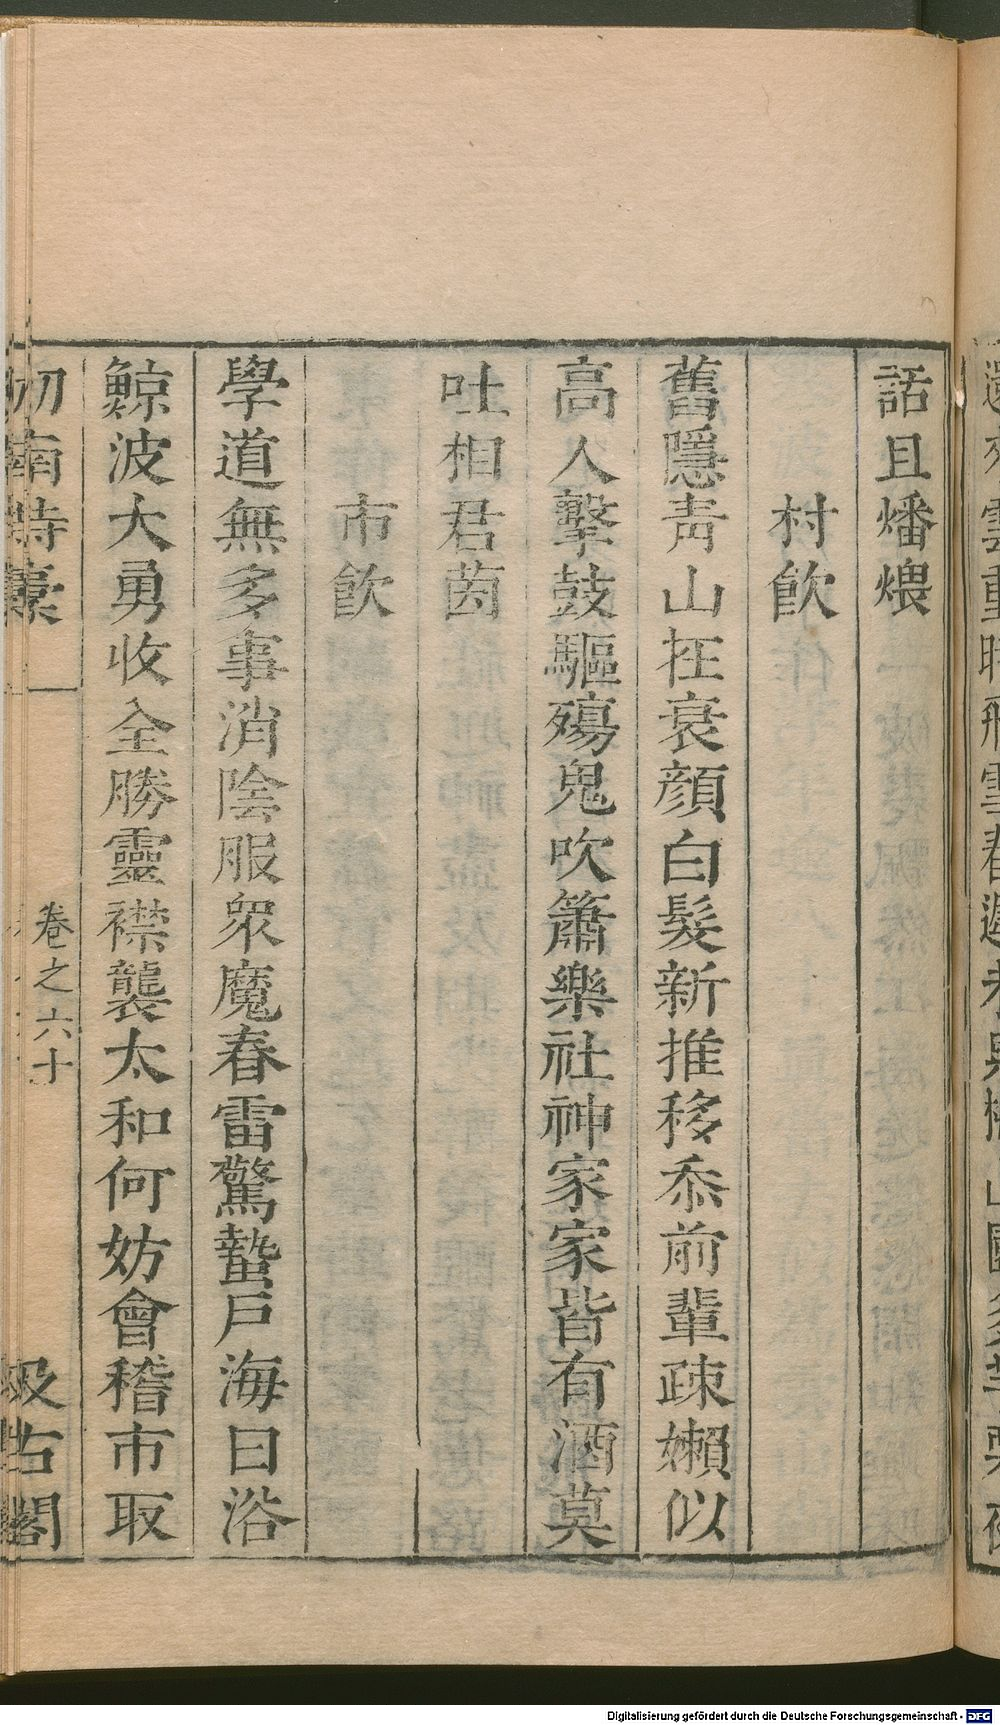 話且燔煨
村飮
舊隱靑山在衰顏白髮新推移忝前輩疎嬾似
高人擊鼓驅殤鬼吹簫樂社神家家皆有酒莫
吐相君茵
市飮
學道無多事消陰服衆魔春雷驚蟄戸海日浴
鯨波大勇收全勝靈襟襲太和何妨會稽市取
劒南詩藁
卷之六十
汲古閣
Digitalisierung gefördert durch die Deutsche Forschungsgemeinschaft - DFG